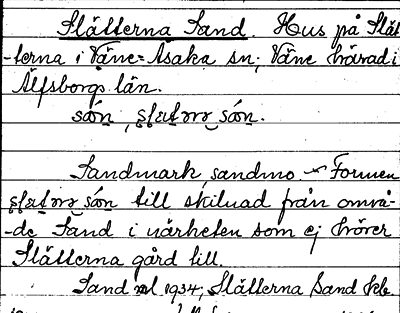 Slätterna Sand. Hus på Slät-
-terna i Väne-Åsaka sn; Väne härad i
Älfsborgs län.
Sandmark, sandmo – Formen
till skilnad från områ-
-de Sand i närheten som ej hörer
Slätterna gård till.
Sand 1934; Slätterna Sand